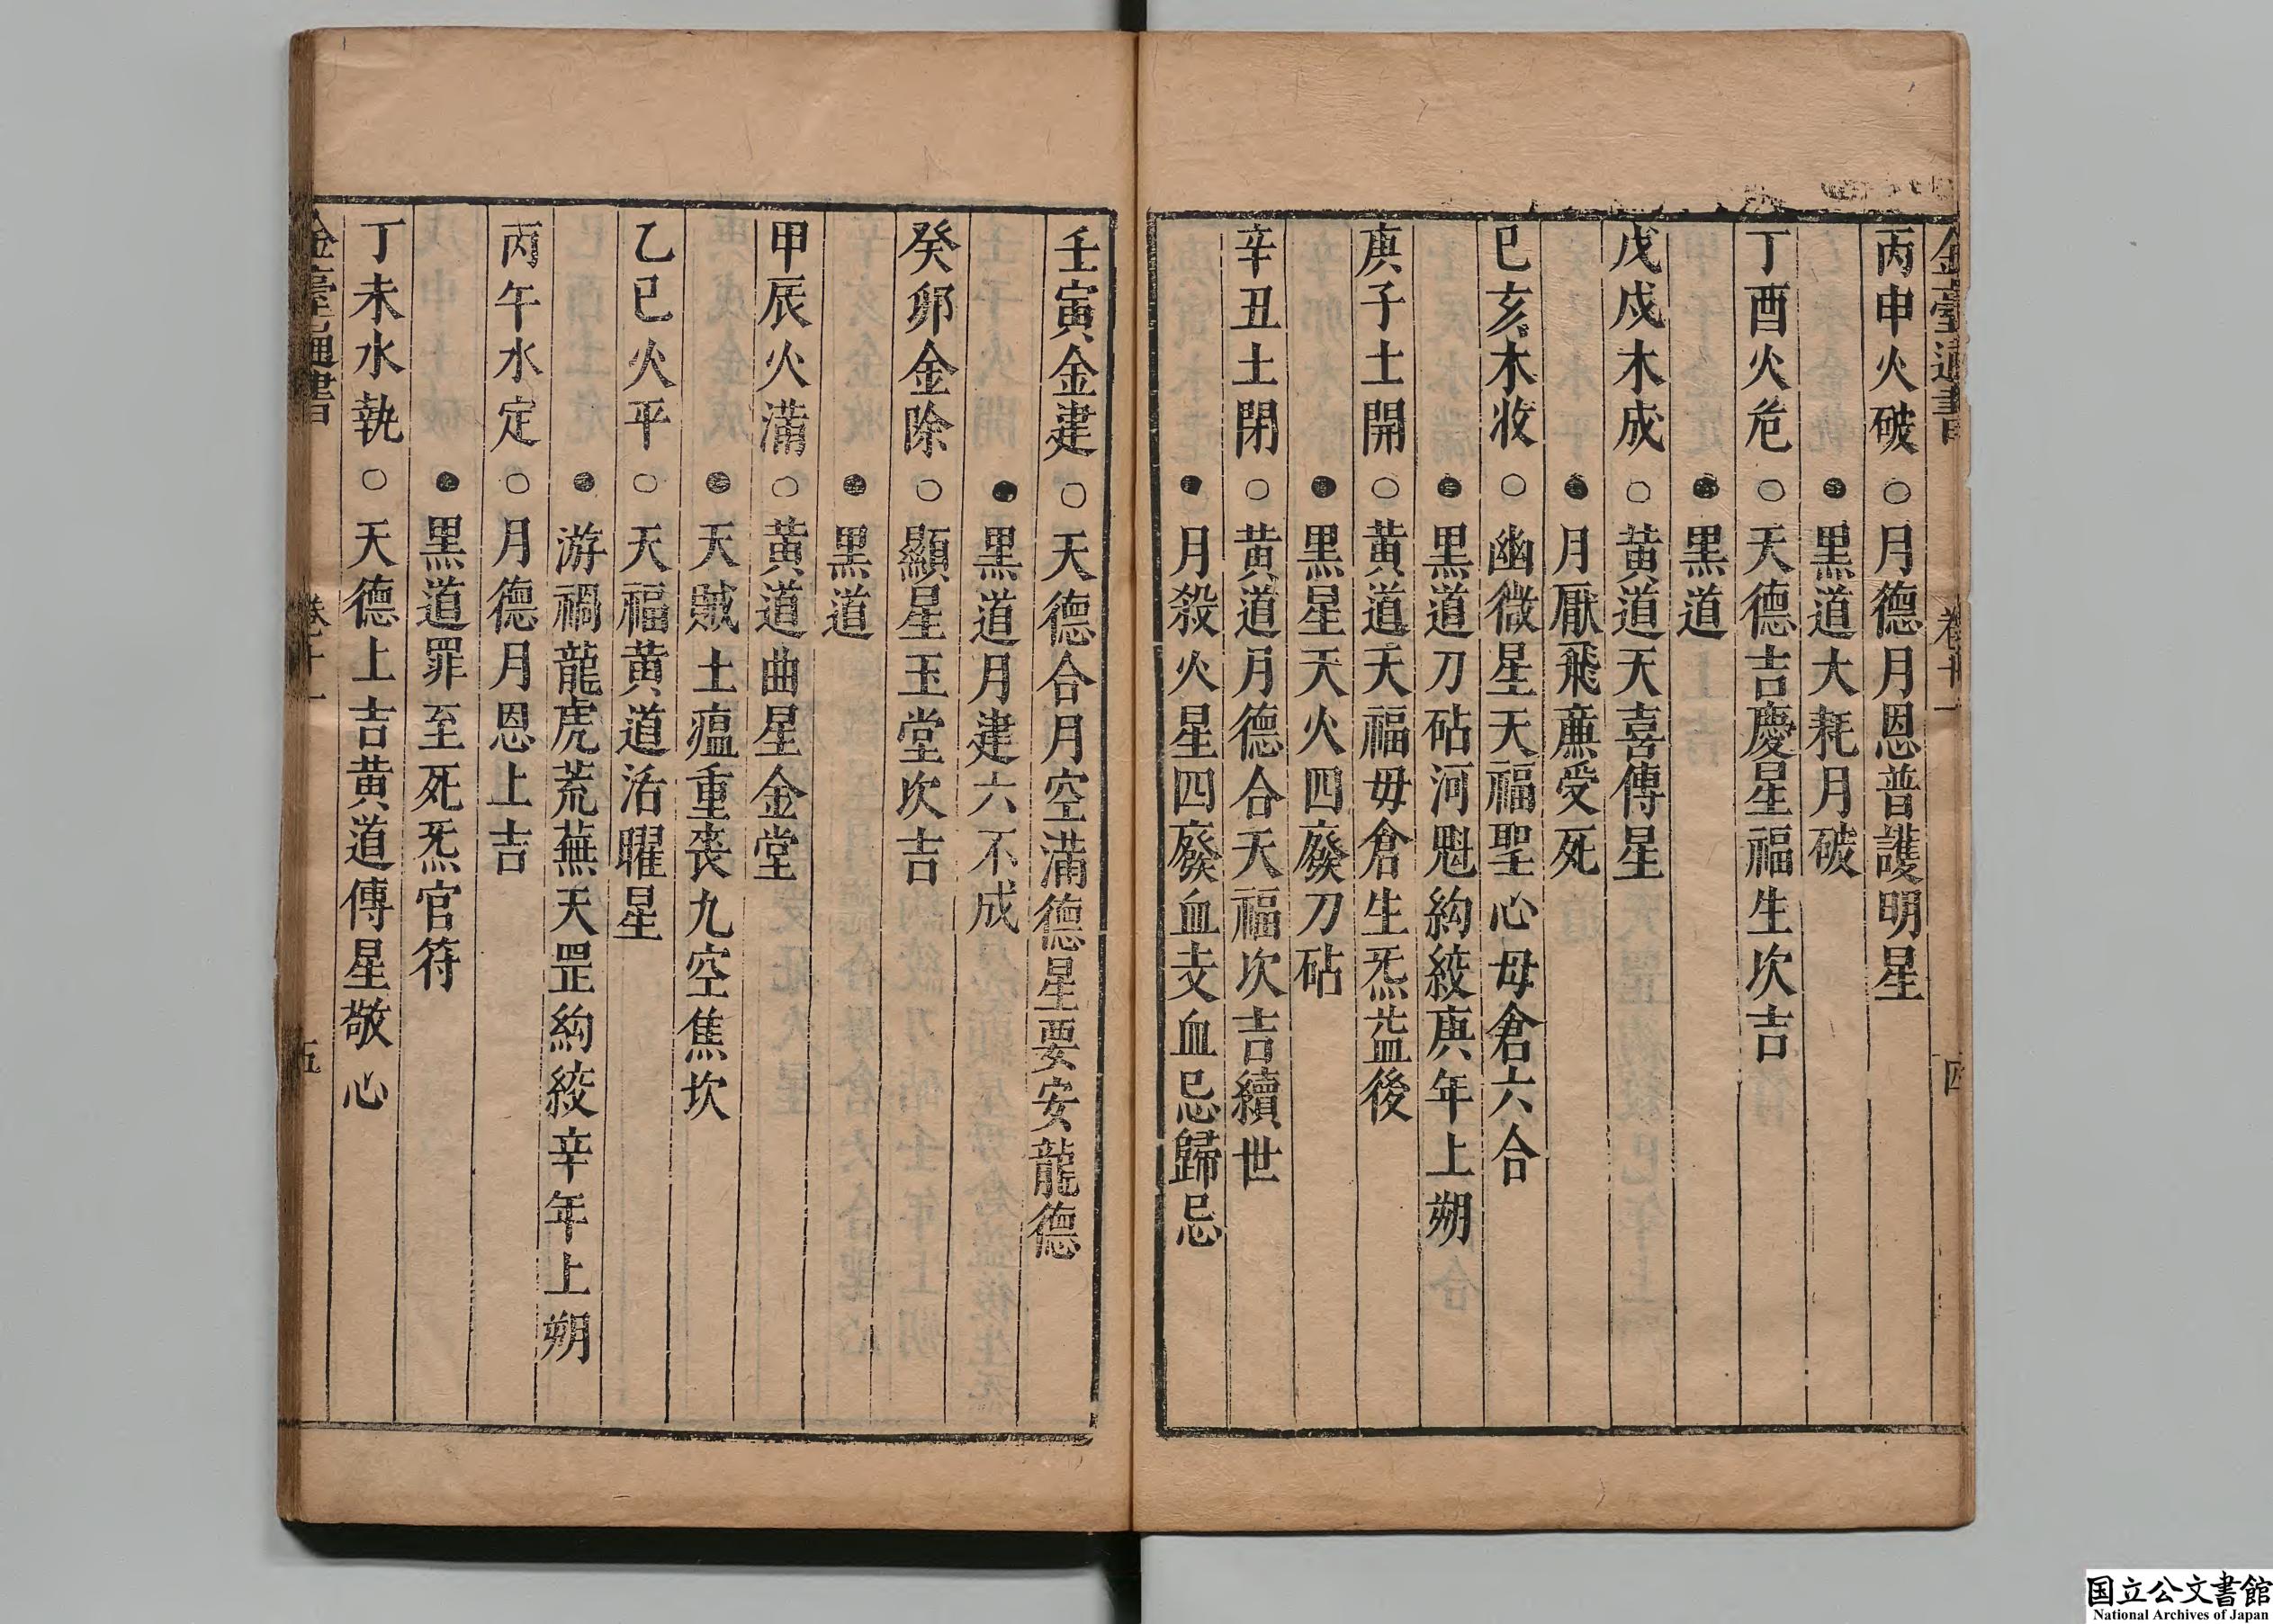 金臺通書 卷廿一 四
丙申火破○月德月恩普護明星
●黑道大耗月破
丁酉火危○天德吉慶星福生次吉
●黑道
戊戌木成○黃道天喜傳星
●月厭飛廉受死
巳亥木收○幽微星天福聖心母倉六合
●黑道刀砧河魁絞庚年上朔
庚子土開○黃道天福母倉生炁益後
●黑星天火四廢刀砧
辛丑土閉○黃道月德合天福次吉續世
●月殺火星四廢血支血忌歸忌
壬寅金建○天德合月空滿德星要安龍德
●黑道月建六不成
癸卯金除○顯星玉堂次吉
●黑道
甲辰火滿○黃道曲星金堂
●天賊土瘟重喪九空焦坎
乙巳火平○天福黃道活曜星
●游禍龍虎荒蕪天罡絞辛年上朔
丙午水定○月德月恩上吉
●黑道罪至死炁官符
丁未水執○天德上吉黃道傳星敬心
金臺通書 五
国立公文書館
National Archives of Japan